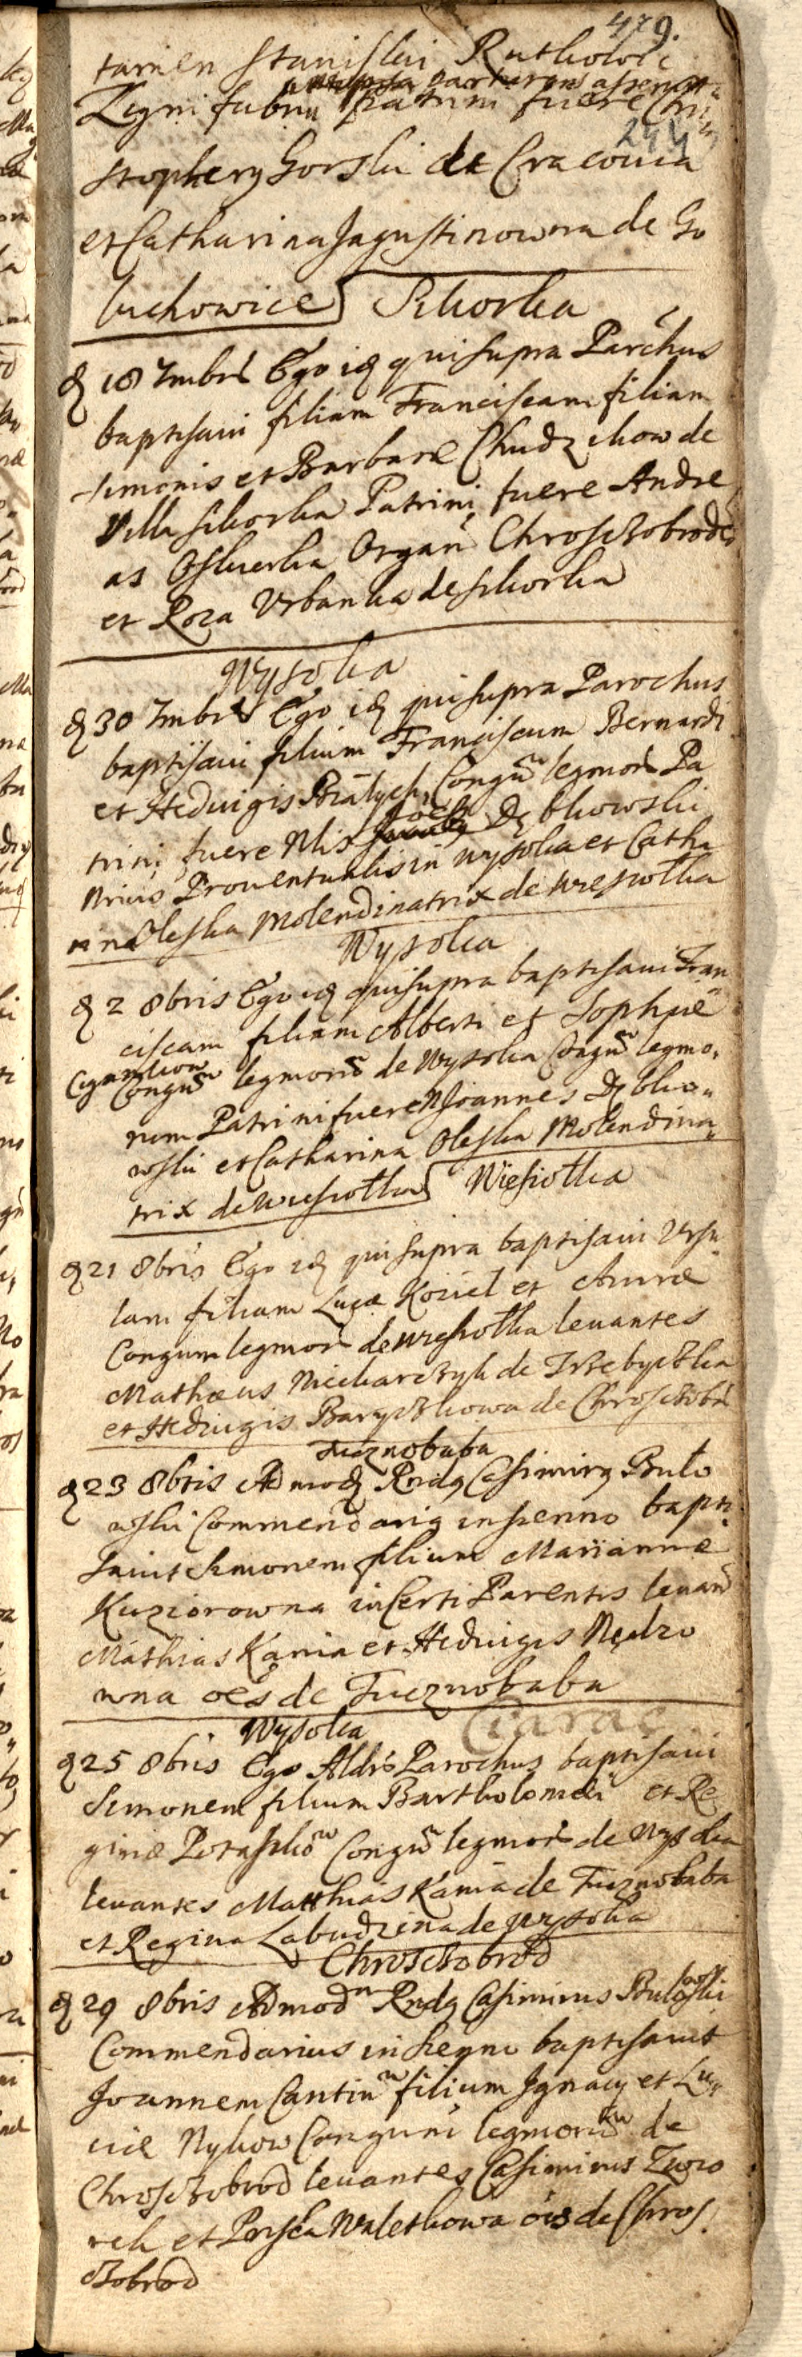 479.
tamen Stanislai Rutkowic
Ligni fabri Patrini fuere Chri
244
stophery Gorski de Cracovia
et Catharina Jagustinowna de Go
luchowice Sikorka
D 18 7mbris Ego id qui supra Parchus
baptisavi filiam Franciscam filiam
Simonis et Barbarae Chudzikow de
Villa Sikorka Patrini fuere Andre
as Osluerka Organ Chrosczobrod
et Roza Urbanka de Sikorka
Wysoka
D 30 7mbris Ego id qui supra Parochus
baptisavi filium Franciscum Bernardi
et Hedvigis Białych Congu legmor Pa
trini fuere Dębkowski
Provent in Wysoka et Catha
rina Oleska Molendinatrix de Wiesiołka
Wysoka
D 2 8bris Ego id qui supra baptisavi Fran
ciscam filiam Alberti et Sophiae
Cyganikow
Congu legmoru de Wysoka Congu legmo
rum Patrini fuere Joannes Dębko
wski et Catharina Oleska Molendina
trix de Wiesiołka Wiesiołka
D 21 8bris Ego id qui supra baptisavi Ursu
lam filiam Lucae Kozieł et Annae
Congum legmor de Wiesiołka levantes
Mathaeus Niecharczyk de Trzebyczka
et Hedvigis Baryczkowa de Chrosczobr
Tucznobaba
D 23 8bris Admod Rndq Casimirq Buło
wski Commendariq in baptis
avit Simonem filium Mariannae
Kuziorowna incerti Parentis levan
Mathias Kania et Hedvigis Nędzo
wna oes de Tucznobaba
Wysoka
D 25 8bris Ego Aldrs Parochus baptisavi
Simonem filium Bartholomei et Re
ginae Potasko Congu legmor de Wysoka
levantes Matthias Kania de Tucznobaba
et Regina Labudzina de Wysoka
Chrosczobrod
D 29 8bris Admod Rndq Casimirus Bułowski
Commendarius in baptisavit
Joannem Cantiu filium Ignacy et Lu
ciae Nykow Conguni legmoru de
Chrosczobrod levantes Casimirus Zwo
rek et Walethowa ois de Chros
czobrod